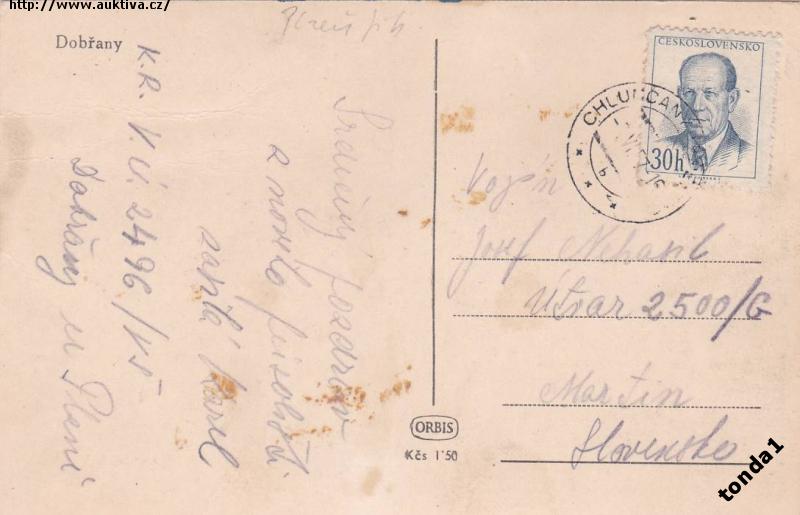 http://www.auktiva.cz/
Dobřany
Plzeň jih.
K.R. V.Ú. 2496/
Dobřany u Plzně
Srdečný pozdrav
z nového působiště
zasílá Karel
ČESKOSLOVENSKO
30h
CHLUMČANY
Vojín
Josef
Útvar 2500/G
Martin
Slovensko
ORBIS
Kčs 1'50
tonda1